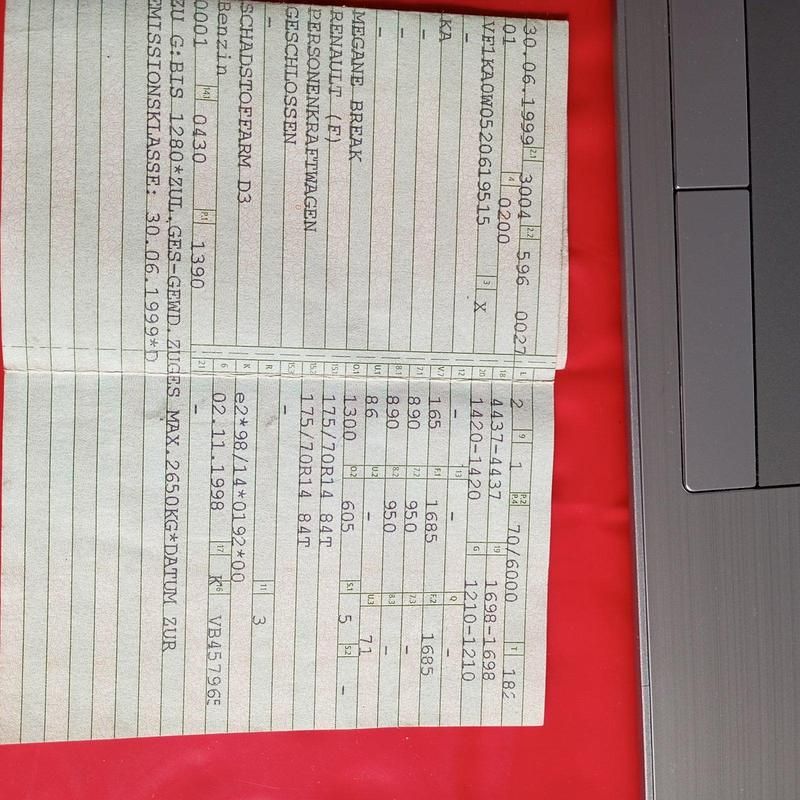 30.06.1999 2.1 3004 2.2 596 0027 L 2 9 1 P.2 P.4 70/6000 T 182
01 4 0200 18 4437-4437 19 1698-1698
VF1KA0W0520619515 3 X 20 1420-1420 G 1210-1210
- 12 - 13 - Q -
KA V.7 165 F.1 1685 F.2 1685
- 7.1 890 7.2 950 7.3 -
- 8.1 890 8.2 950 8.3 -
- U.1 86 U.2 - U.3 71
MEGANE BREAK O.1 1300 O.2 605 S.1 5 S.2 -
RENAULT (F) 15.1 175/70R14 84T
PERSONENKRAFTWAGEN 15.2 175/70R14 84T
GESCHLOSSEN 15.3 -
- R 11 3
SCHADSTOFFARM D3 K e2*98/14*0192*00
Benzin 6 02.11.1998 17 K 16 VB457965
0001 14.1 0430 P.1 1390 21 -
ZU G:BIS 1280*ZUL.GES-GEWD.ZUGES MAX.2650KG*DATUM ZUR
EMISSIONSKLASSE: 30.06.1999*D